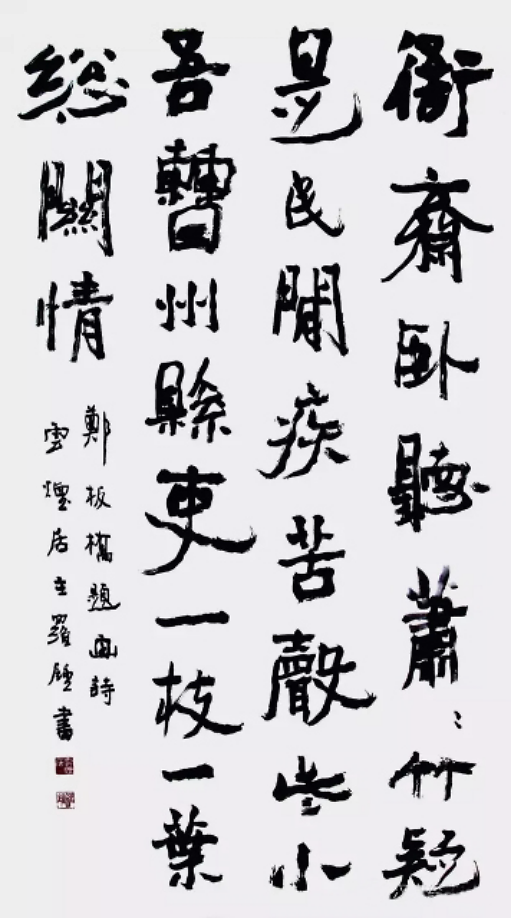 衙齋卧聽蕭〻竹疑
是民閒疾苦聲些小
吾曹州縣吏一枝一葉
総關情
鄭板橋題畫詩
雲煙居主羅書